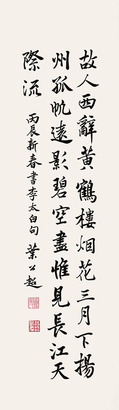 故人西辭黃鶴樓烟花三月下揚
州孤帆遠影碧空盡惟見長江天
際流
丙辰新春書李太白句 葉公超